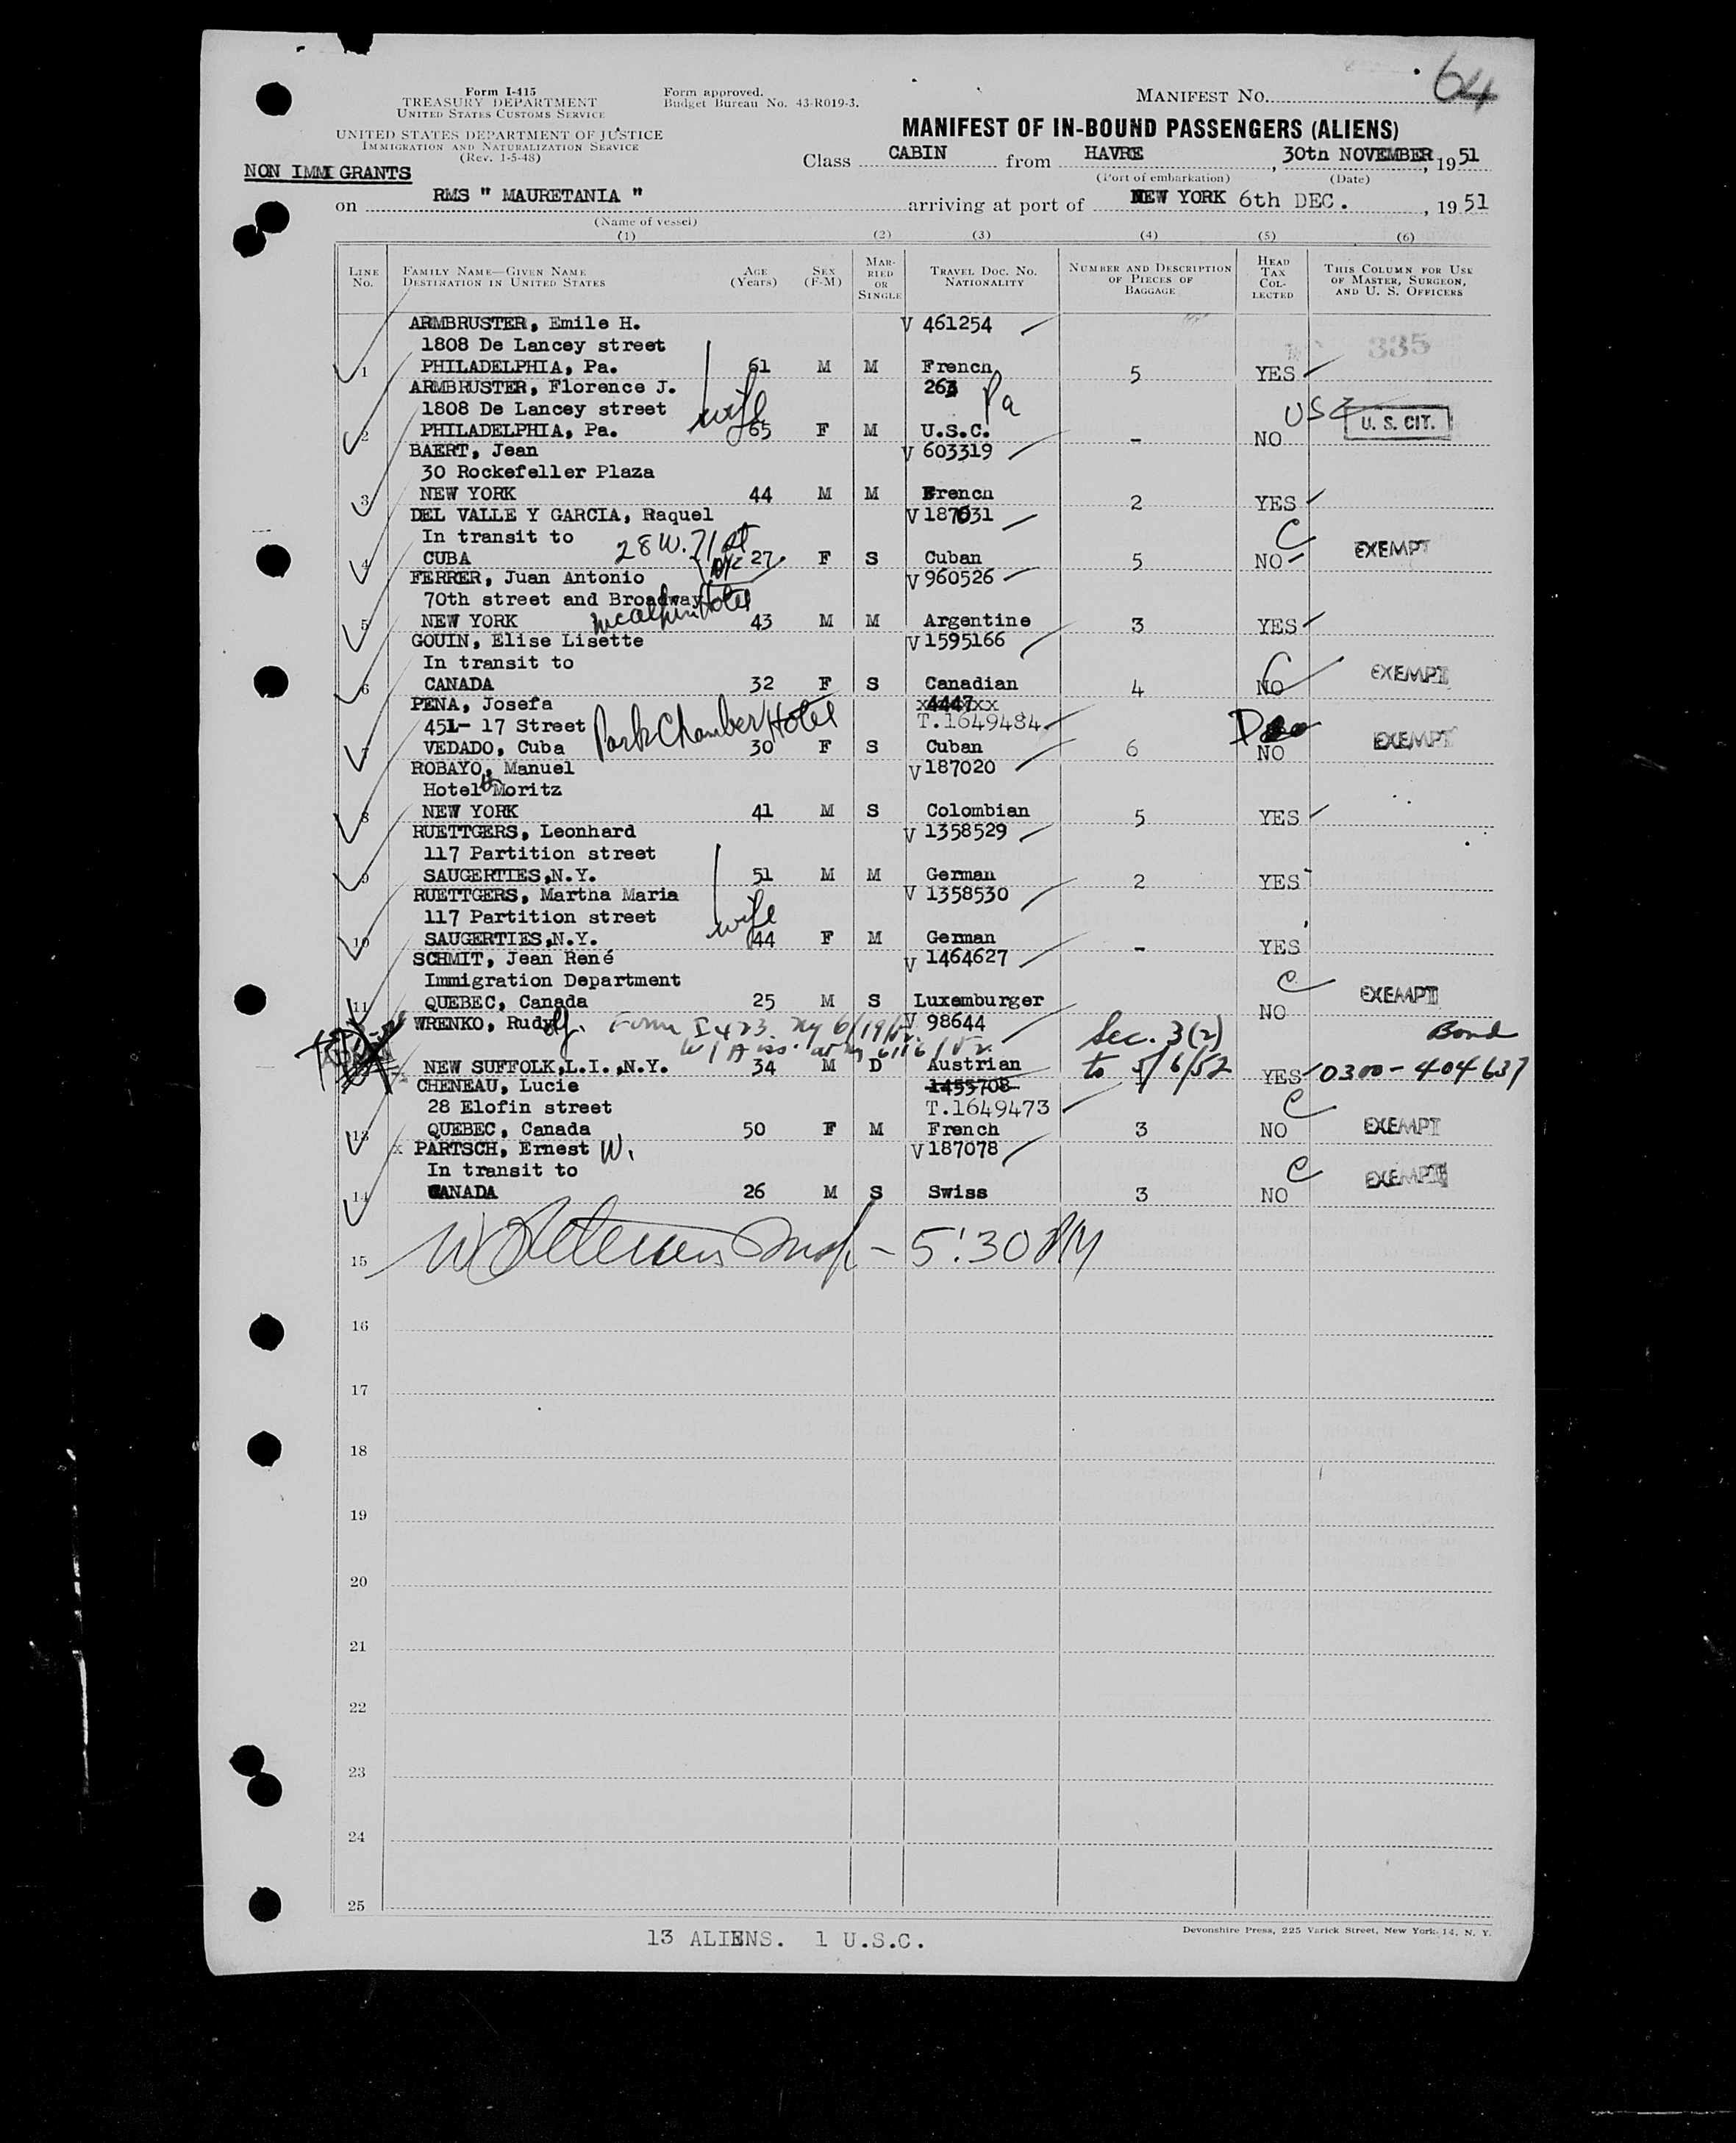 64
Form I-415
TREASURY DEPARTMENT
UNITED STATES CUSTOMS SERVICE
Form approved.
Budget Bureau No. 43-R019-3.
MANIFEST NO.
UNITED STATES DEPARTMENT OF JUSTICE
IMMIGRATION AND NATURALIZATION SERVICE
(Rev. 1-5-48)
MANIFEST OF IN-BOUND PASSENGERS (ALIENS)
NON IMMIGRANTS
Class CABIN from HAVRE, 30th NOVEMBER, 1951
(Port of embarkation) (Date)
on RMS " MAURETANIA " arriving at port of NEW YORK 6th DEC., 1951
(Name of vessel)
(1) (2) (3) (4) (5) (6)
LINE NO.
FAMILY NAME—GIVEN NAME
DESTINATION IN UNITED STATES
AGE (Years)
SEX (F-M)
MARRIED OR SINGLE
TRAVEL DOC. NO. NATIONALITY
NUMBER AND DESCRIPTION OF PIECES OF BAGGAGE
HEAD TAX COLLECTED
THIS COLUMN FOR USE OF MASTER, SURGEON, AND U. S. OFFICERS
ARMBRUSTER, Emile H. V 461254
1808 De Lancey street 335
1 PHILADELPHIA, Pa. 61 M M French 5 YES
ARMBRUSTER, Florence J. 263 Pa
1808 De Lancey street wife USC U. S. CIT.
2 PHILADELPHIA, Pa. 65 F M U.S.C. - NO
BAERT, Jean V 603319
30 Rockefeller Plaza
3 NEW YORK 44 M M French 2 YES
DEL VALLE Y GARCIA, Raquel V 187031
In transit to 28 W. 71 St C EXEMPT
4 CUBA NYC 27 F S Cuban 5 NO
FERRER, Juan Antonio V 960526
70th street and Broadway McAlpin Hotel
5 NEW YORK 43 M M Argentine 3 YES
GOUIN, Elise Lisette V 1595166
In transit to C EXEMPT
6 CANADA 32 F S Canadian 4 NO
PENA, Josefa 4447
451- 17 Street Park Chamber Hotel T.1649484
7 VEDADO, Cuba 30 F S Cuban 6 NO EXEMPT
ROBAYO, Manuel V 187020
Hotel St Moritz
8 NEW YORK 41 M S Colombian 5 YES
RUETTGERS, Leonhard V 1358529
117 Partition street
9 SAUGERTIES,N.Y. 51 M M German 2 YES
RUETTGERS, Martha Maria V 1358530
117 Partition street wife
10 SAUGERTIES,N.Y. 44 F M German - YES
SCHMIT, Jean René V 1464627
Immigration Department C EXEMPT
11 QUEBEC, Canada 25 M S Luxemburger NO
WRENKO, Rudolf. Form I 423 Ny 6/19/52 V 98644 Sec. 3(2) Bond
NEW SUFFOLK,L.I.,N.Y. 34 M D Austrian to 5/6/52 YES 0300-404637
CHENEAU, Lucie 1455708
28 Elofin street T.1649473 C
13 QUEBEC, Canada 50 F M French 3 NO EXEMPT
x PARTSCH, Ernest W. V 187078
In transit to C EXEMPT
14 CANADA 26 M S Swiss 3 NO
15 Insp. - 5:30 PM
16
17
18
19
20
21
22
23
24
25
13 ALIENS. 1 U.S.C.
Devonshire Press, 225 Varick Street, New York 14, N. Y.